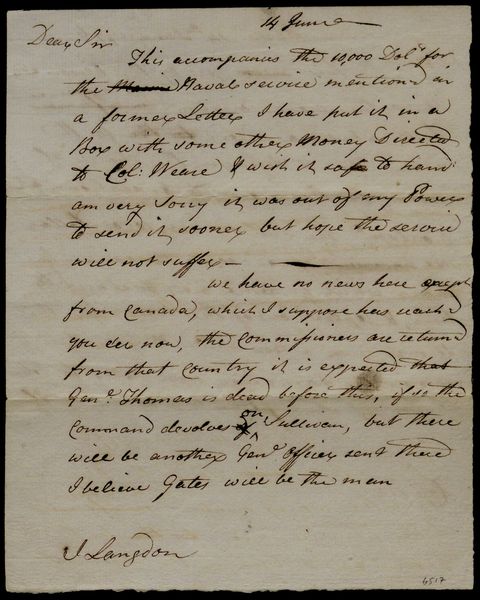 14 June
Dear Sir
This accompanies the 10,000 Dolrs for
the Marine Naval service mentiond in
a former Letter I have put it in a
Box with some other Money Directed
to Col: Weare I wish it safe to hand
am very sorry it was out of my Power
to send it sooner but hope the service
will not suffer —
we have no news here except
from Canada, which I suppose has reach'd
you e'er now, the Commissioners are returnd
from that country it is expected that
Genl. Thomas is dead before this, if so the
Command devolves on Sullivan, but there
will be another Genl Officer sent there
I believe Gates will be the man
J Langdon
6517